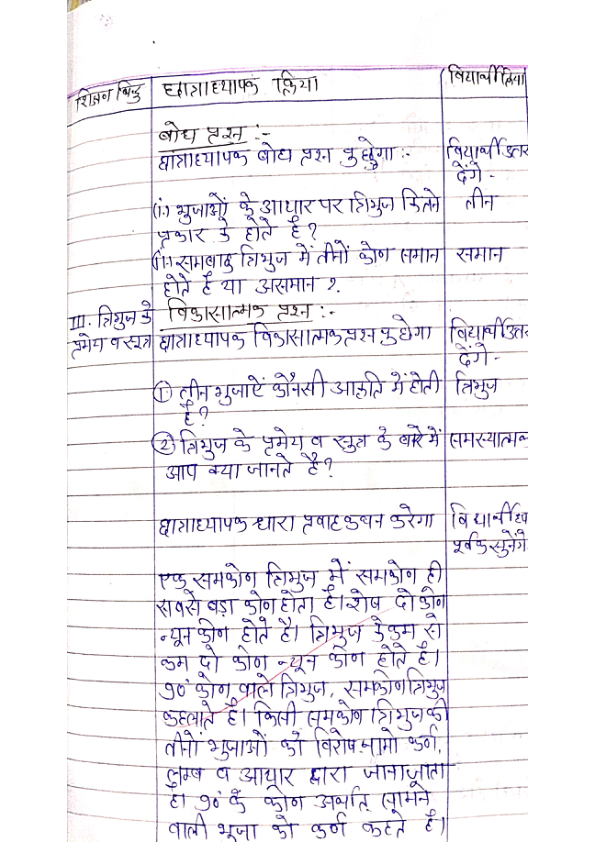 शिक्षण बिन्दु छात्राध्यापक क्रिया विद्यार्थी क्रिया
बोध प्रश्न :-
छात्राध्यापक बोध प्रश्न पुछेगा :- विद्यार्थी उत्तर
देंगे -
(i) भुजाओं के आधार पर त्रिभुज कितने तीन
प्रकार के होते है?
(ii) समबाहु त्रिभुज में तीनों कोण समान समान
होते है या असमान ?
III. त्रिभुज के विकासात्मक प्रश्न :-
प्रमेय व सूत्र छात्राध्यापक विकासात्मक प्रश्न पुछेगा विद्यार्थी उत्तर
देंगे -
① तीन भुजाऐं कौनसी आकृति में होती त्रिभुज
है?
② त्रिभुज के प्रमेय व सुत्र के बारे में समस्यात्मक
आप क्या जानते है?
छात्राध्यापक द्वारा प्रवाह कथन करेगा विद्यार्थी
पूर्वक सुनेंगे
एक समकोण त्रिभुज में समकोण ही
सबसे बड़ा कोण होता है। शेष दो कोण
न्यून कोण होते है। त्रिभुज के कम से
कम दो कोण न्यून कोण होते है।
90° कोण वाले त्रिभुज, समकोण त्रिभुज
कहलाते है। किसी समकोण त्रिभुज की
तीनों भुजाओं को विशेष नामो कर्ण,
लम्ब व आधार द्वारा जाना जाता
है। 90° के कोण अर्थात् सामने
वाली भूजा को कर्ण कहते है।